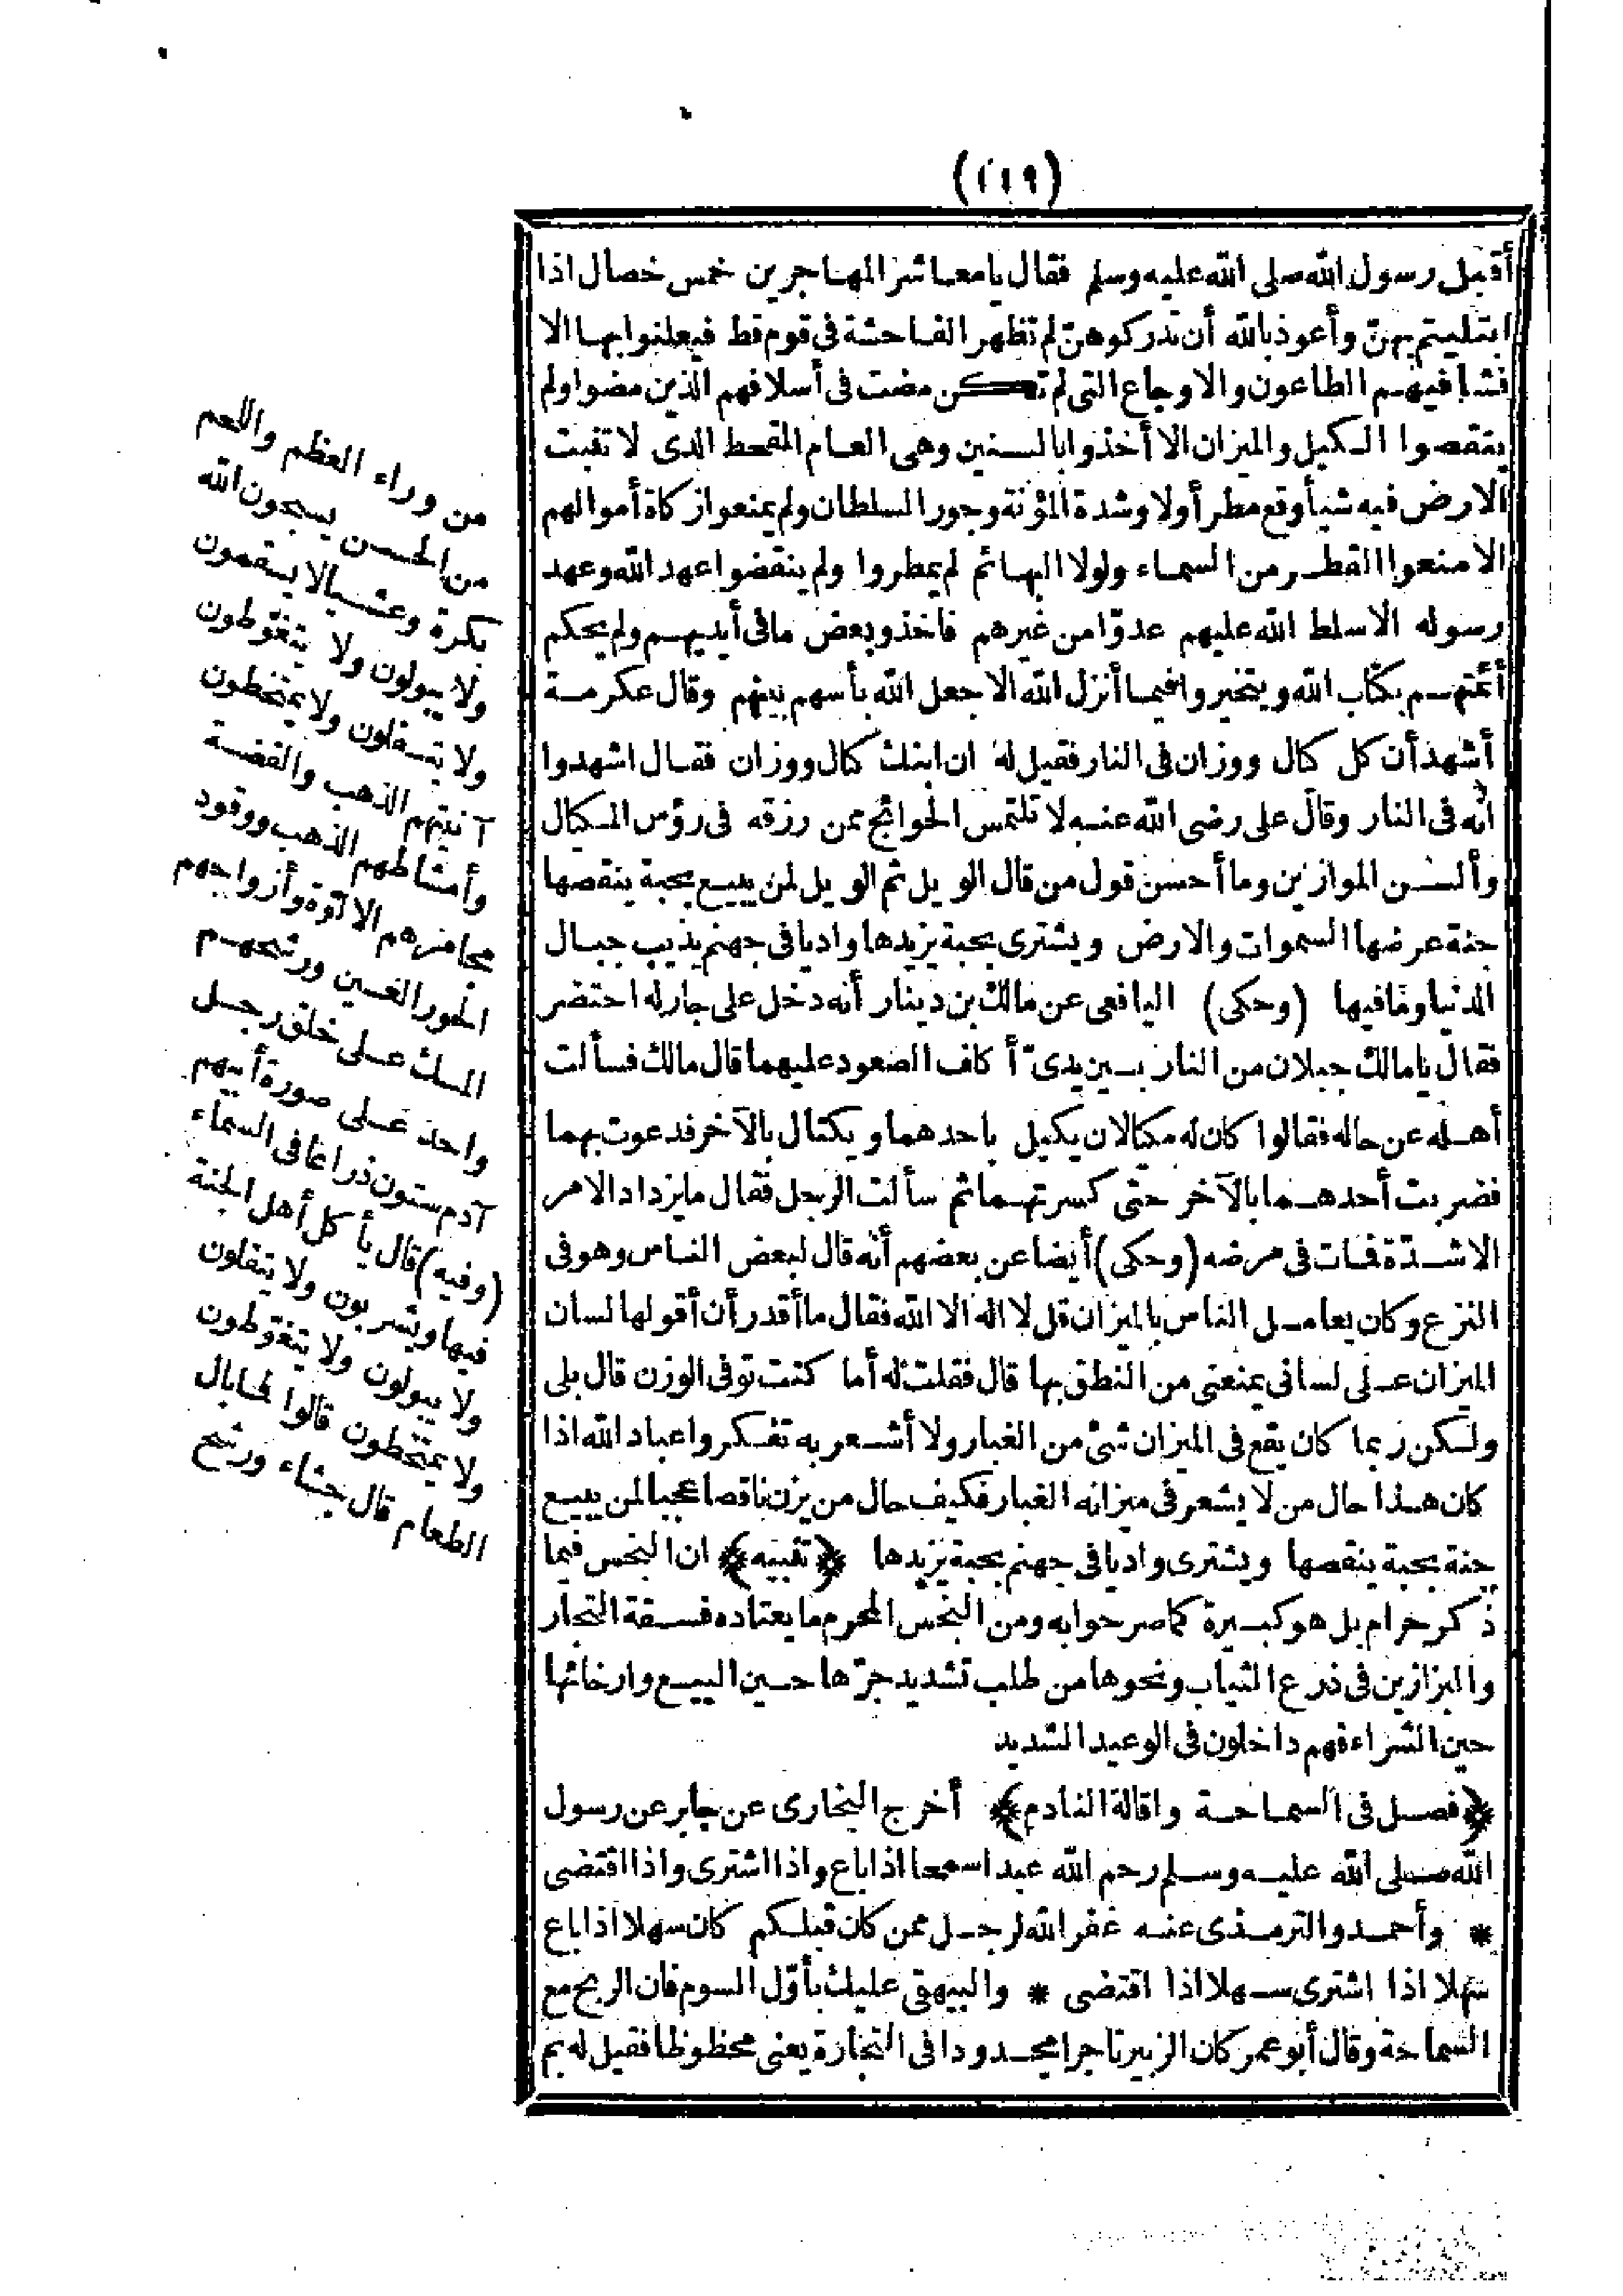 (١١٩)
أقبل رسول الله صلى الله عليه وسلم فقال يا معاشر المهاجرين خمس خصال اذا
ابتليتم بهنّ وأعوذ بالله أن تدركوهنّ لم تظهر الفاحشة فى قوم قط فيعلنوا بها الا
فشا فيهم الطاعون والاوجاع التى لم تكن مضت فى أسلافهم الذين مضوا ولم
ينقصوا الكيل والميزان الا أخذوا بالسنين وهى العام المقحط الذى لا تنبت
الارض فيه شيأ وقع مطر أولا وشدة المؤنة وجور السلطان ولم يمنعوا زكاة أموالهم
الا منعوا القطر من السماء ولولا البهائم لم يمطروا ولم ينقضوا عهد الله وعهد
رسوله الا سلط الله عليهم عدوّا من غيرهم فاخذو بعض ما فى أيديهم ولم يحكم
أئمتهم بكتاب الله ويتخيروا فيما أنزل الله الا جعل الله بأسهم بينهم وقال عكرمة
أشهد أن كل كال ووزان فى النار فقيل له ان ابنك كال ووزان فقال اشهدوا
أنه فى النار وقال على رضى الله عنه لا تلتمس الحوائج ممن رزقه فى رؤس المكيال
وألسن الموازين وما أحسن قول من قال الويل ثم الويل لمن يبيع بحبة ينقصها
جنة عرضها السموات والارض ويشترى بحبة يزيدها واديا فى جهنم يذيب جبال
الدنيا وما فيها (وحكى) اليافعى عن مالك بن دينار أنه دخل على جار له احتضر
فقال يا مالك جبلان من النار بين يدىّ أكاف الصعود عليهما قال مالك فسألت
أهله عن حاله فقالوا كان له مكيالان يكيل باحدهما ويكتال بالآخر فدعوت بهما
فضربت أحدهما بالآخر حتى كسرتهما ثم سألت الرجل فقال ما يزداد الامر
الا شدّة فمات فى مرضه (وحكى) أيضا عن بعضهم أنه قال لبعض الناس وهو فى
النزع وكان يعامل الناس بالميزان قل لا اله الا الله فقال ما أقدر أن أقولها لسان
الميزان على لسانى يمنعنى من النطق بها قال فقلت له أما كنت توفى الوزن قال بلى
ولكن ربما كان يقع فى الميزان شئ من الغبار ولا أشعر به تفكروا عباد الله اذا
كان هذا حال من لا يشعر فى ميزانه الغبار فكيف حال من يزن ناقصا عجبا لمن يبيع
جنة بحبة ينقصها ويشترى واديا فى جهنم بحبة يزيدها ﴿تنبيه﴾ ان البخس فيما
ذكر حرام بل هو كبيرة كما صرحوا به ومن البخس المحرم ما يعتاده فسقة التجار
والبزازين فى ذرع الثياب ونحوها من طلب تشديد جرّها حين البيع وارخائها
حين الشراء فهم داخلون فى الوعيد الشديد
﴿فصل فى السماحة واقالة النادم﴾ أخرج البخارى عن جابر عن رسول
الله صلى الله عليه وسلم رحم الله عبدا سمحا اذا باع واذا اشترى واذا اقتضى
* وأحمد والترمذى عنه غفر الله لرجل ممن كان قبلكم كان سهلا اذا باع
سهلا اذا اشترى سهلا اذا اقتضى * والبيهقى عليك بأوّل السوم فان الربح مع
السماحة وقال أبو عمر كان الزبير تاجرا مجدودا فى التجارة يعنى محظوظا فقيل له بم
من وراء العظم واللحم
من الحسن يسبحون الله
بكرة وعشيا لا يسقمون
ولا يبولون ولا يتغوّطون
ولا يتفلون ولا يمتخطون
آنيتهم الذهب والفضة
وأمشاطهم الذهب ووقود
مجامرهم الالوّة وأزواجهم
الحور العين ورشحهم
المسك على خلق رجل
واحد على صورة أبيهم
آدم ستون ذراعا فى السماء
(وفيه) قال يأكل أهل الجنة
فيها ويشربون ولا يتفلون
ولا يبولون ولا يتغوّطون
ولا يمتخطون قالوا فما بال
الطعام قال جشاء ورشح